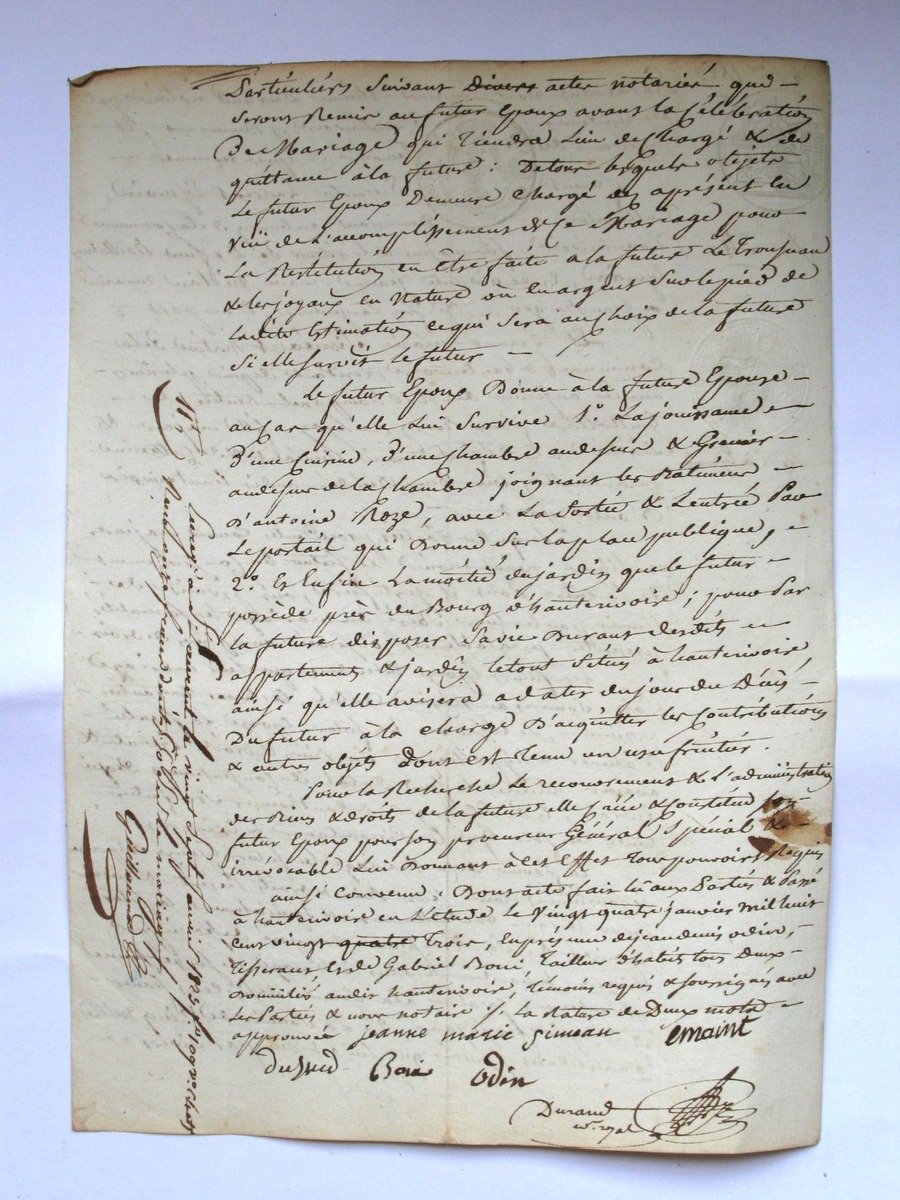 Particuliers Suivant Divers actes notariés qui
Seront Remis au futur Epoux avant la Célébration
De Mariage qui Tiendra Lieu de Chargé & de
quittance à la future : De tous lesquels objets
Le futur Epoux Demeure chargé des aprésent En
Vuë de L'accomplissement de Ce Mariage pour
La Restitution en Etre faite a la future Le Trousseau
& les joyaux en Nature ou En argent Sur le pied de
Ladite Estimation ce qui Sera au choix de la future
Si elle survit le futur —
Le futur Epoux Donne à la future Epouse —
au Cas qu'elle Lui Survive 1° La jouissance
D'une Cuisine, D'une Chambre au dessus & Grenier —
au dessus de la Chambre joignant les Batimens —
D'antoine Roze, avec La Sortie & L'entrée Par
Le portail qui Donne Sur la place publique,
2° Et Enfin La moitié du jardin que le futur —
possède près du Bourg d'hauterivoire ; pour Par
la future disposer Sa vie Durant desdits
appartements & jardin le tout Situés à hauterivoire
ainsi qu'elle avisera a dater du jour du Décès —
Du futur à la charge D'acquitter les Contributions
& autres objets dont est Tenu un usufruitier.
Pour la Recherche Le recouvrement & L'administration
des Biens & droits de la future elle fait & Constitue son
futur Epoux pour son procureur Général Spécial &
irrévocable Lui Donnant à cet Effet Tous pouvoirs Requis
ainsi Convenu : Dont acte fait lu aux Parties & Passé
à hauterivoire en L'étude le Vingt quatre janvier Mil huit
Cent vingt quatre Trois, En présence de jean denis odin,
Tisserant Et de Gabriel Boni, Tailleur d'habits tous Deux
Domiciliés audit hauterivoire, Témoins requis & soussignés avec
Les Parties & nous notaire ./. La Rature de Deux mots
approuvée jeanne marie Simean emaint
Boni odin
Durand
n.re royal
Enreg. à St. Laurent le vingt Sept janvier 1823 f° 109 v° Case
Reçu onze francs
le mariage
Guillermin